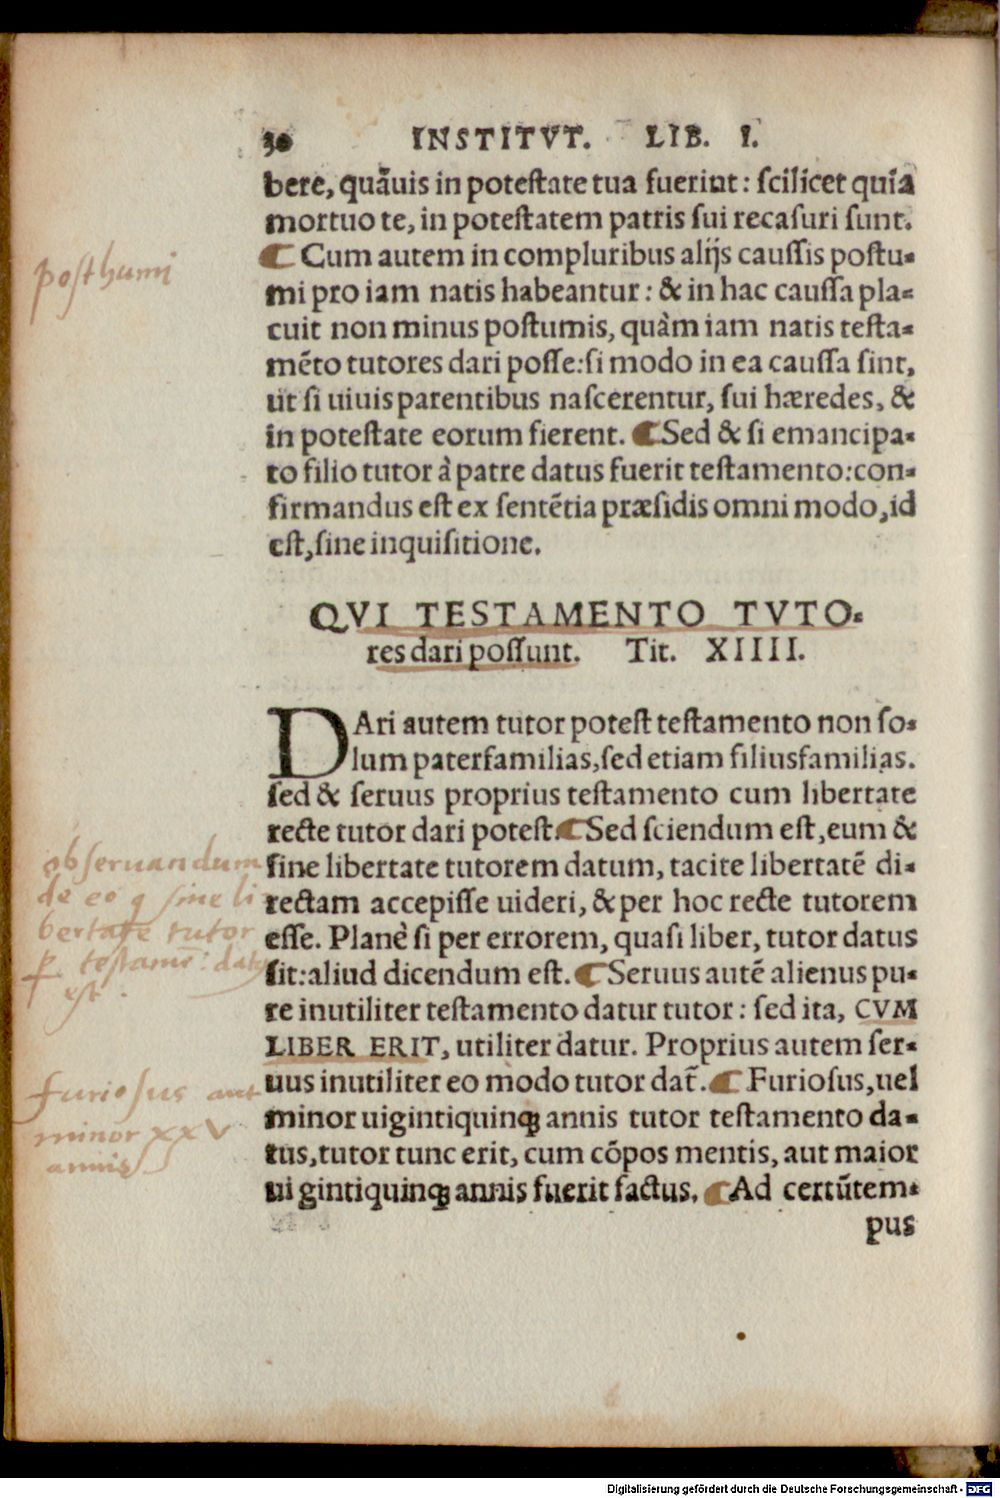 30 INSTITVT. LIB. I.
bere, quāuis in potestate tua fuerint: scilicet quia
mortuo te, in potestatem patris sui recasuri sunt.
¶ Cum autem in compluribus alijs caussis postu-
mi pro iam natis habeantur: & in hac caussa pla-
cuit non minus postumis, quàm iam natis testa-
mēto tutores dari posse: si modo in ea caussa sint,
ut si uiuis parentibus nascerentur, sui hæredes, &
in potestate eorum fierent. ¶ Sed & si emancipa-
to filio tutor à patre datus fuerit testamento: con-
firmandus est ex sentētia præsidis omni modo, id
est, sine inquisitione.
QVI TESTAMENTO TVTO-
res dari possunt. Tit. XIIII.
DAri autem tutor potest testamento non so-
lum paterfamilias, sed etiam filiusfamilias.
sed & seruus proprius testamento cum libertate
recte tutor dari potest. ¶ Sed sciendum est, eum &
sine libertate tutorem datum, tacite libertatē di-
rectam accepisse uideri, & per hoc recte tutorem
esse. Planè si per errorem, quasi liber, tutor datus
sit: aliud dicendum est. ¶ Seruus autē alienus pu-
re inutiliter testamento datur tutor: sed ita, CVM
LIBER ERIT, utiliter datur. Proprius autem ser-
uus inutiliter eo modo tutor dat̄. ¶ Furiosus, uel
minor uigintiquinq; annis tutor testamento da-
tus, tutor tunc erit, cum cōpos mentis, aut maior
ui gintiquinq; annis fuerit factus. ¶ Ad certūtem-
pus
posthumi
obseruandum
de eo q sine li
bertate tutor
p testamē: datus
est.
furiosus aut
minor xxv
annis
Digitalisierung gefördert durch die Deutsche Forschungsgemeinschaft - DFG